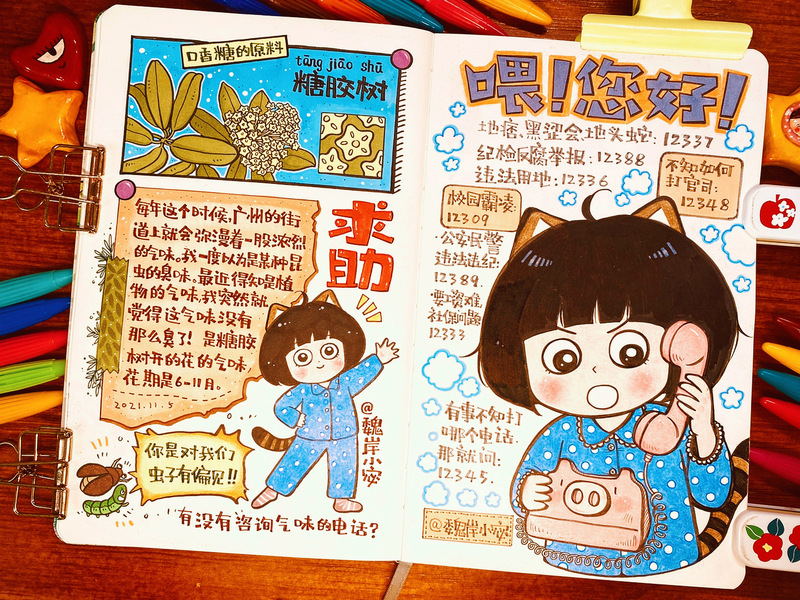 口香糖的原料
táng jiāo shù
糖胶树
每年这个时候,广州的街
道上就会弥漫着一股浓烈
的气味。我一度以为是某种昆
虫的臭味。最近得知是植
物的气味,我突然就
觉得这气味没有
那么臭了!是糖胶
树开的花的气味,
花期是6-11月。
2021.11.5
求助
@魏岸小安
你是对我们
虫子有偏见!!
有没有咨询气味的电话?
喂!您好!
地痞、黑涩会、地头蛇:12337
纪检反腐举报:12388
违法用地:12336
不知如何
打官司:
12348
校园霸凌:
12309
·公安民警
违法违纪:
12389.
·要资难
社保问题:
12333
有事不知打
哪个电话.
那就问:
12345.
@魏岸小安